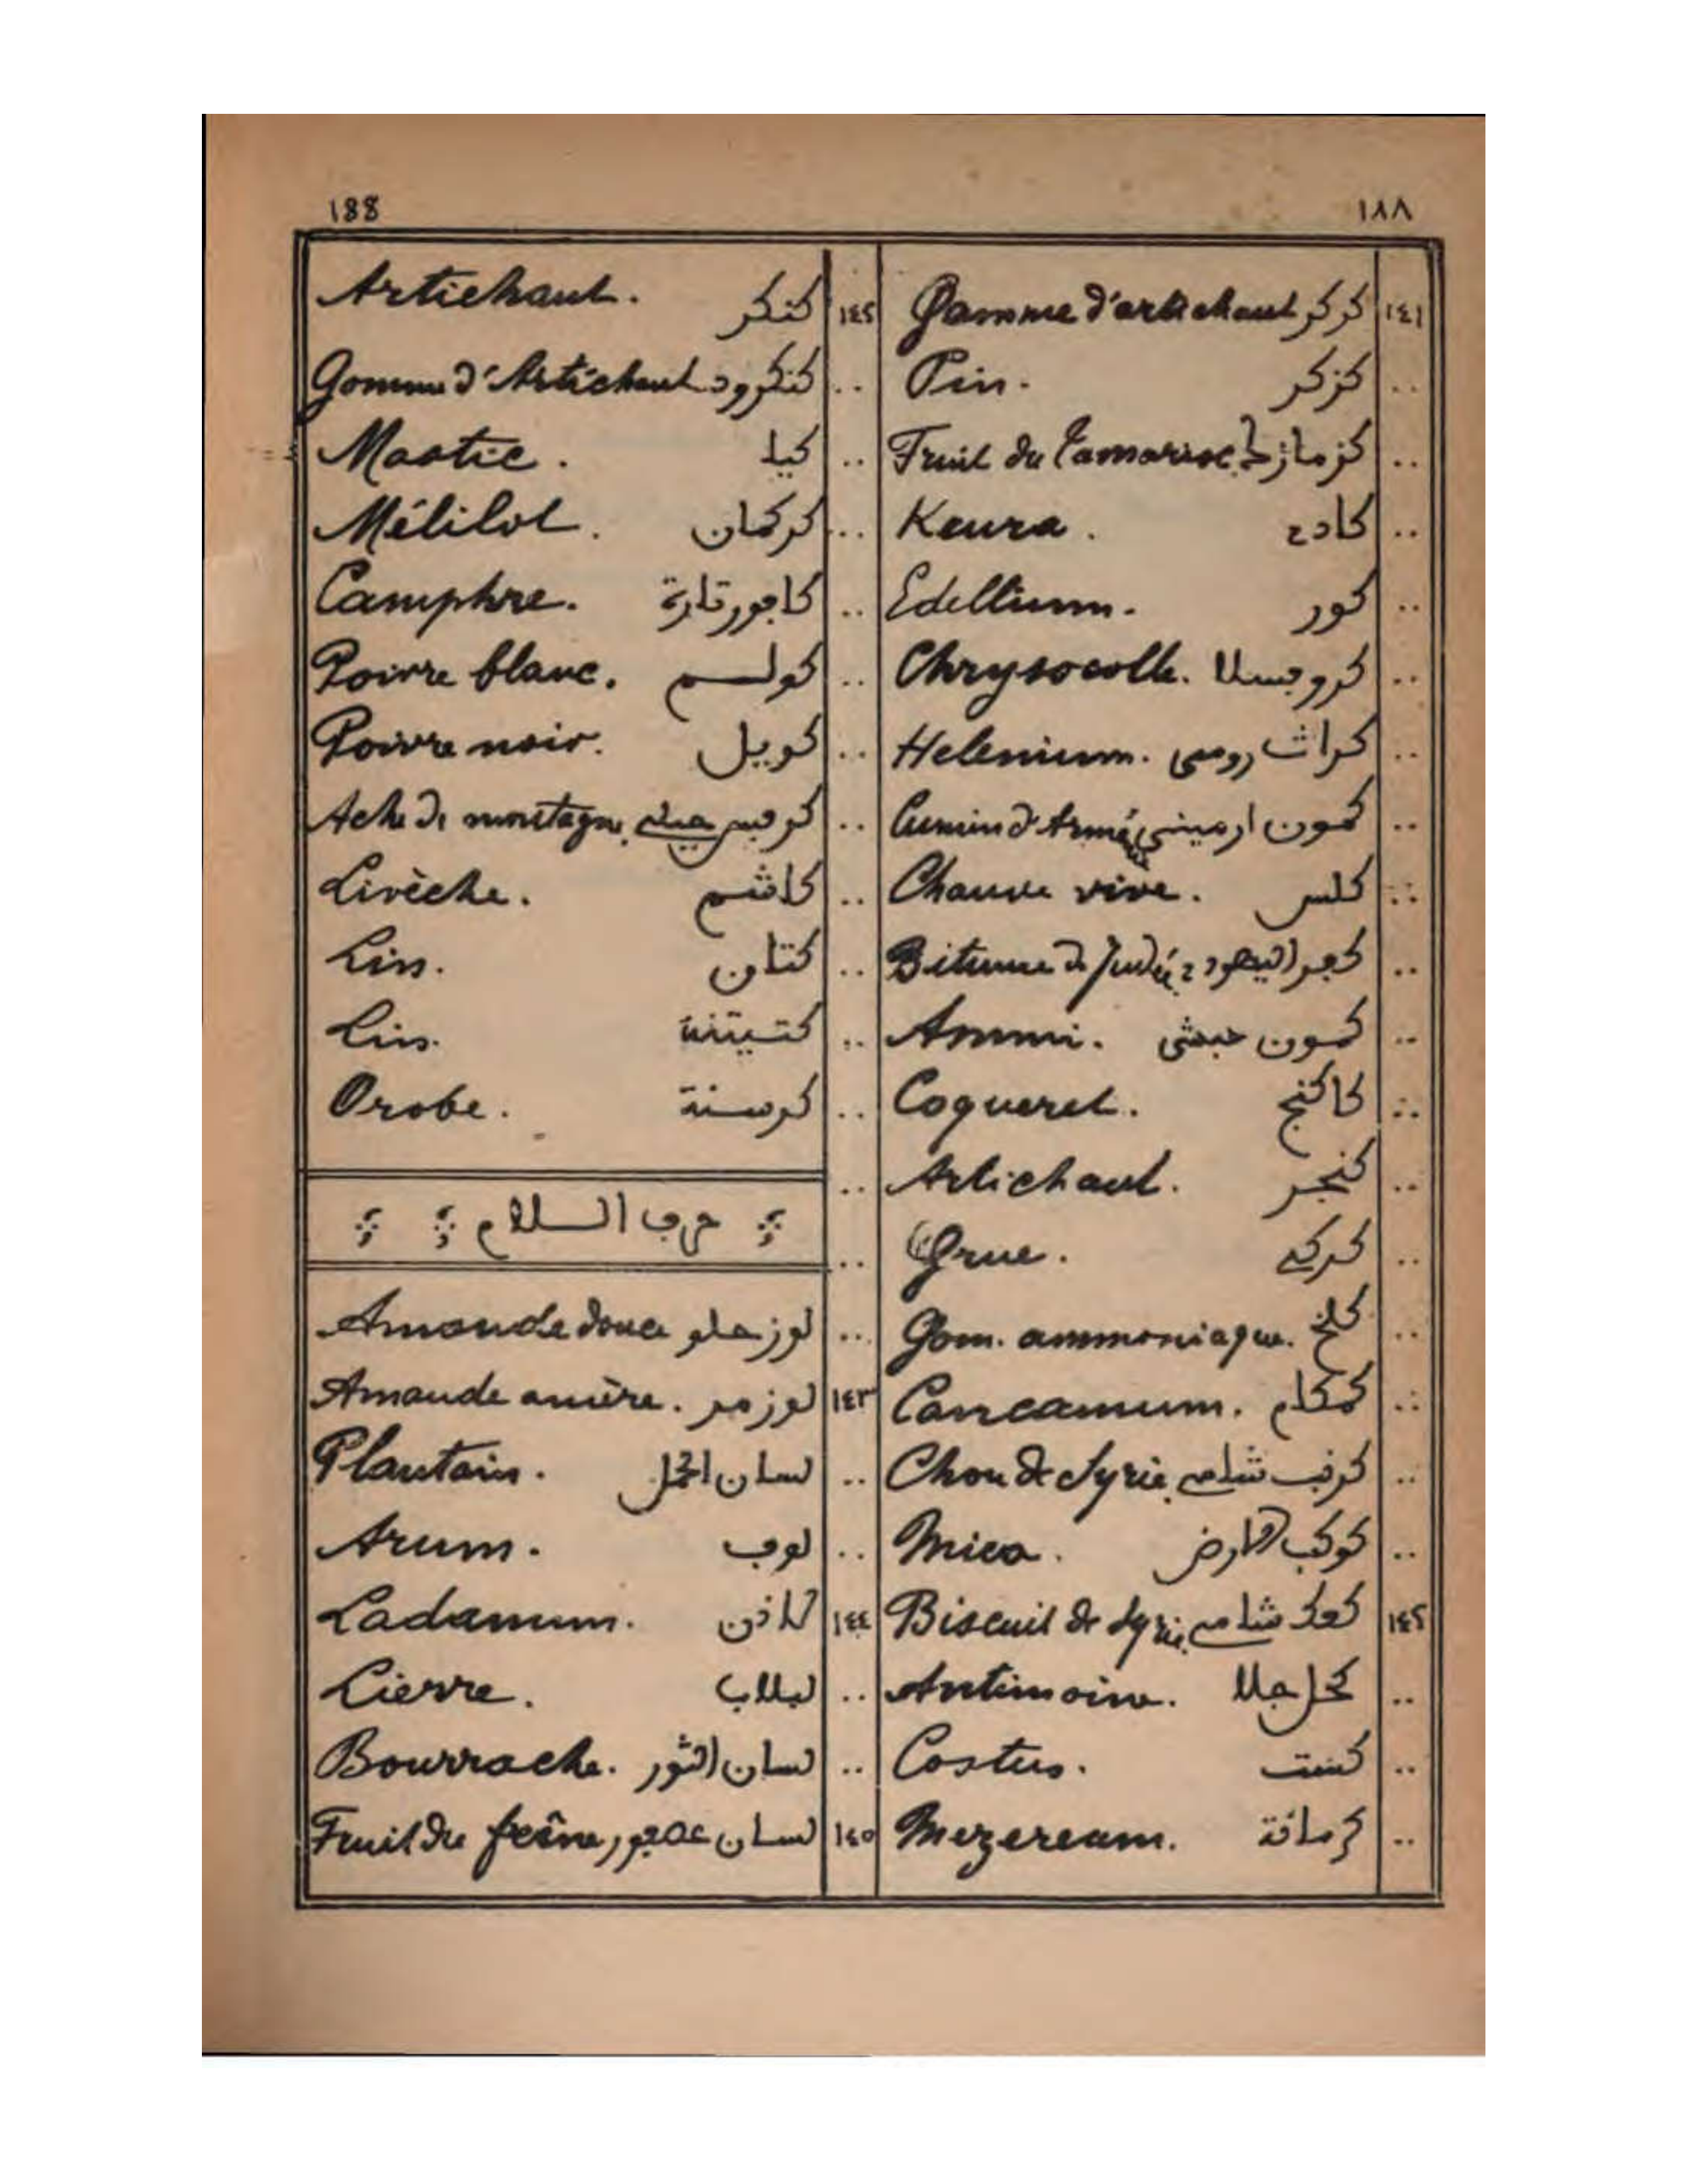 188 ١٨٨
١٤١ كركر Gomme d'artichaut
.. كزكر Pin.
.. كزمازك Fruit du Tamarisc
.. كادي Keura.
.. كور Edellium.
.. كروجسلا Chrysocolle.
.. كراث رومي Helenium.
.. كمون ارميني Cumin d'Arménie
.. كلس Chaux vive.
.. كفر اليهودي Bitume de Judée
.. كمون حبشي Ammi.
.. كاكنج Coqueret.
.. كنجر Artichaut.
.. كركي Grue.
.. كلخ Gom. ammoniaque.
.. كمكام Cancamum.
.. كرنب شامي Chou de Syrie
.. كوكب الارض Mica.
١٤٢ كعك شامي Biscuit de Syrie
.. كحل جلا Antimoine.
.. كست Costus.
.. كرمانة Mezereum.
١٤٢ كنكر Artichaut.
.. كنكرود Gomme d'Artichaut
.. كيا Mastic.
.. كركمان Mélilot.
.. كافور قارة Camphre.
.. كولم Poivre blanc.
.. كويل Poivre noir.
.. كرفس جبلي Ache de montagne
.. كاشم Livèche.
.. كتان Lin.
.. كتيتنة Lin.
.. كرسنة Orobe.
حرف اللام
.. لوز حلو Amande douce
١٤٣ لوز مر Amande amère.
.. لسان الحمل Plantain.
.. لوف Arum.
١٤٤ لاذن Ladanum.
.. لبلاب Lierre.
.. لسان الثور Bourrache.
١٤٥ لسان عصفور Fruit du frêne